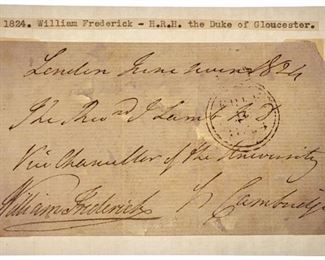 1824. William Frederick - H.R.H. the Duke of Gloucester.
London June seven 1824
The Revd J Lamb D D
Vice Chancellor of the University
William Frederick Cambridge